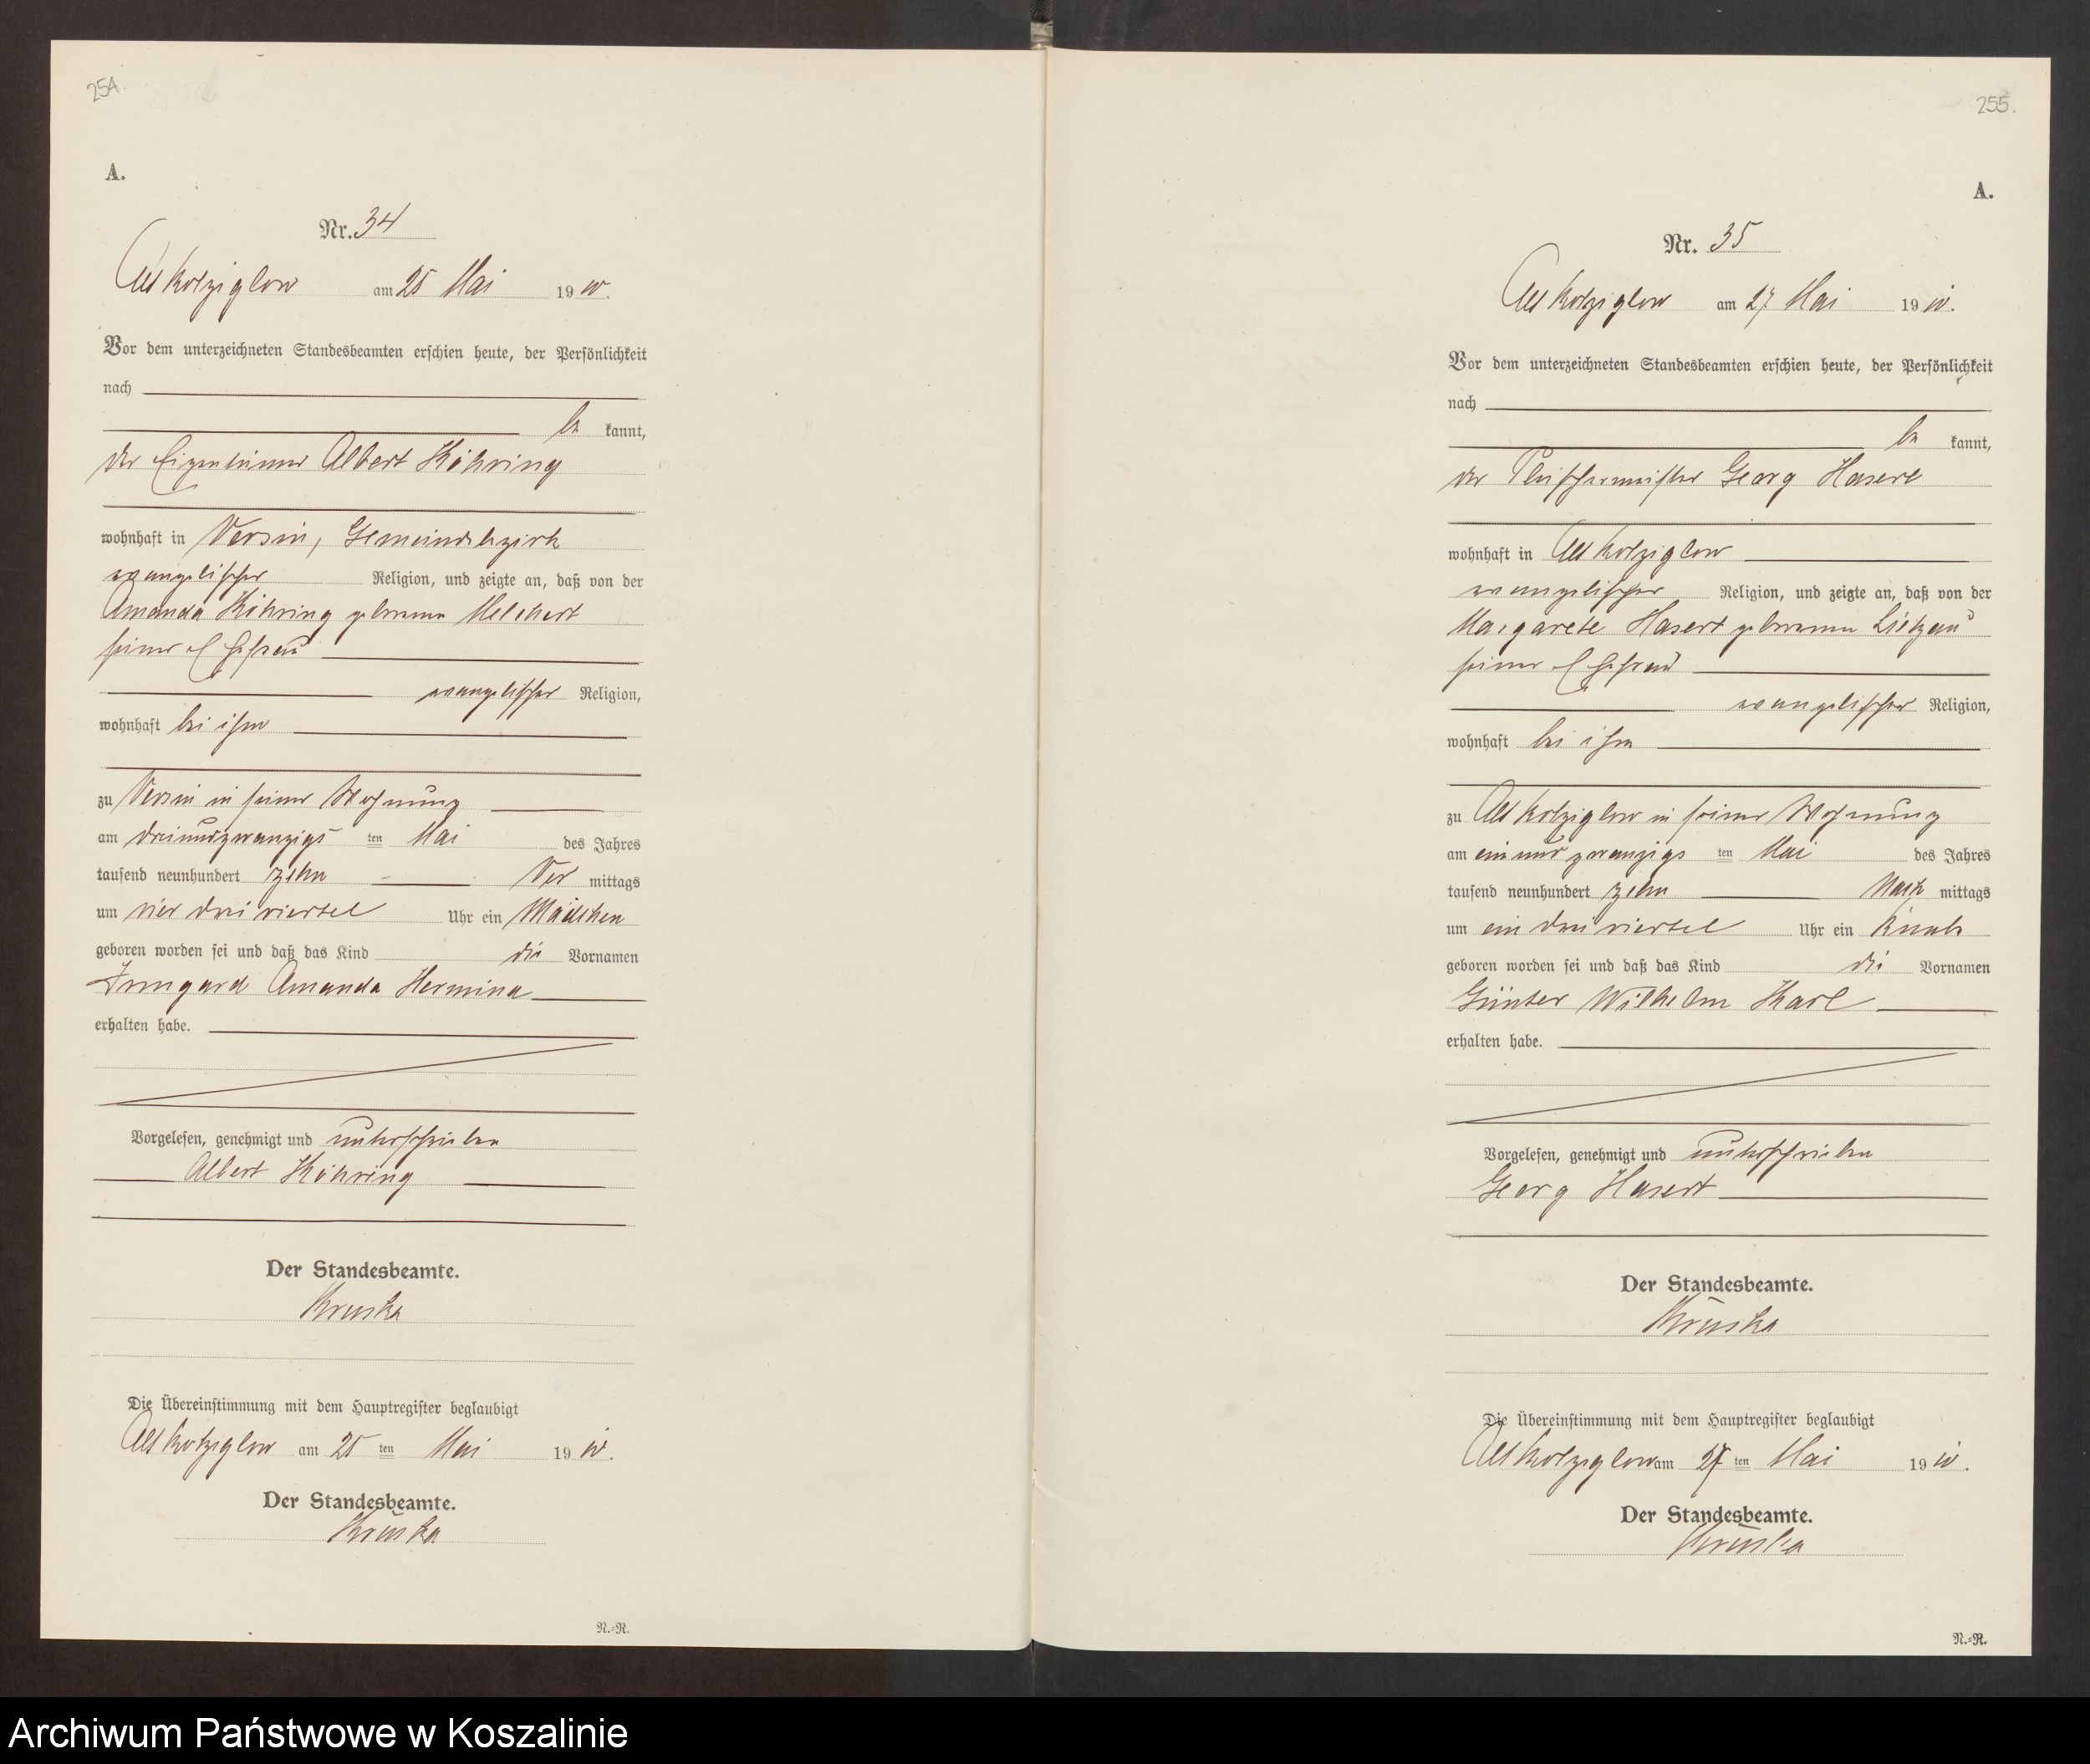 254.
A.
Nr. 34
Alt Kolziglow am 25 Mai 1910.
Vor dem unterzeichneten Standesbeamten erschien heute, der Persönlichkeit
nach
be kannt,
der Eigentümer Albert Köhring
wohnhaft in Versin, Gemeindebezirk
evangelischer Religion, und zeigte an, daß von der
Amanda Köhring geborenen Melchert
seiner Ehefrau
evangelischer Religion,
wohnhaft bei ihm
zu Versin in seiner Wohnung
am dreiundzwanzigs ten Mai des Jahres
tausend neunhundert zehn Vor mittags
um vier dreiviertel Uhr ein Mädchen
geboren worden sei und daß das Kind die Vornamen
Irmgard Amanda Hermina
erhalten habe.
Vorgelesen, genehmigt und unterschrieben
Albert Köhring
Der Standesbeamte.
Kruska
Die Übereinstimmung mit dem Hauptregister beglaubigt
Alt Kolziglow am 25 ten Mai 1910.
Der Standesbeamte.
Kruska
N.=R.
255.
A.
Nr. 35
Alt Kolziglow am 27 Mai 1910.
Vor dem unterzeichneten Standesbeamten erschien heute, der Persönlichkeit
nach
be kannt,
der Fleischermeister Georg Hasert
wohnhaft in Alt Kolziglow
evangelischer Religion, und zeigte an, daß von der
Margarete Hasert geborenen Lietzau
seiner Ehefrau
evangelischer Religion,
wohnhaft bei ihm
zu Alt Kolziglow in seiner Wohnung
am einundzwanzigs ten Mai des Jahres
tausend neunhundert zehn Nach mittags
um ein dreiviertel Uhr ein Knabe
geboren worden sei und daß das Kind die Vornamen
Günter Wilhelm Karl
erhalten habe.
Vorgelesen, genehmigt und unterschrieben
Georg Hasert
Der Standesbeamte.
Kruska
Die Übereinstimmung mit dem Hauptregister beglaubigt
Alt Kolziglow am 27 ten Mai 1910.
Der Standesbeamte.
Kruska
N.=R.
Archiwum Państwowe w Koszalinie